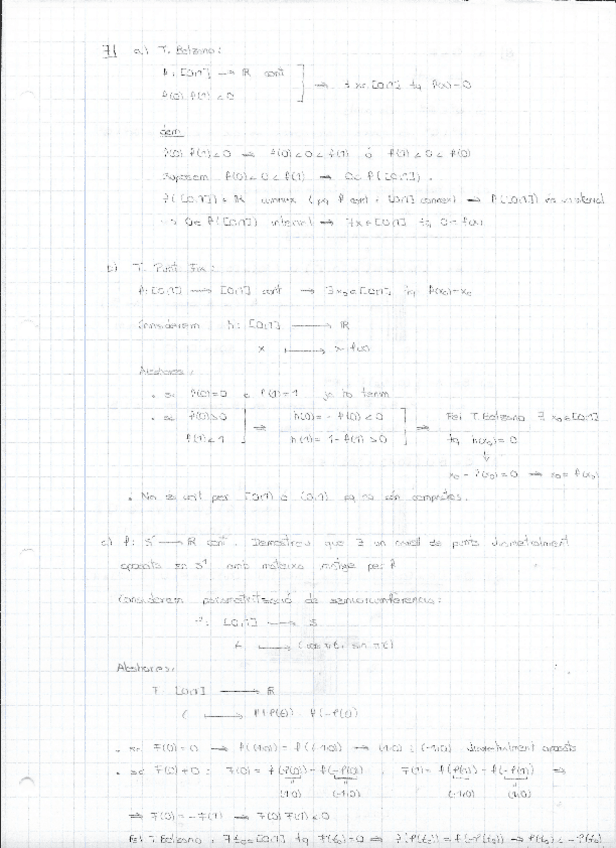 71 a) T. Bolzano:
f: [0,1] → ℝ cont
f(0) f(1) < 0 ] ⇒ ∃ x∈[0,1] tq f(x)=0
dem
f(0) f(1) < 0 ⇒ f(0) < 0 < f(1) ó f(1) < 0 < f(0)
Suposem f(0) < 0 < f(1) ⇒ 0∈ f([0,1]).
f([0,1]) ⊂ ℝ connex (pq f cont i [0,1] connex) ⇒ f([0,1]) és un interval
⇒ 0∈ f([0,1]) interval ⇒ ∃x∈[0,1] tq 0=f(x)
b) T. Punt Fix:
f: [0,1] → [0,1] cont ⇒ ∃x₀∈[0,1] tq f(x₀)=x₀
Considerem h: [0,1] → ℝ
x ↦ x-f(x)
Aleshores:
• si f(0)=0 o f(1)=1 ja ho tenim
• si f(0)>0
f(1)<1 ] ⇒ h(0)=-f(0)<0
h(1)=1-f(1)>0 ] ⇒ Pel T. Bolzano ∃ x₀∈[0,1]
tq h(x₀)=0
⇓
x₀-f(x₀)=0 ⇒ x₀=f(x₀)
• No és vàlid per [0,1) o (0,1) pq no són compactes.
c) f: S¹ → ℝ cont. Demostreu que ∃ un parell de punts diametralment
oposats en S¹ amb mateixa imatge per f
Considerem parametrització de semicircumferència:
[0,1] → S
t ↦ (cos πt, sin πt)
Aleshores,
F: [0,1] → ℝ
t ↦ f(φ(t)) - f(-φ(t))
• si F(0)=0 ⇒ f((1,0)) = f((-1,0)) ⇒ (1,0) i (-1,0) diametralment oposats
• si F(0)≠0: F(0) = f(φ(0)) - f(-φ(0)), F(1) = f(φ(1)) - f(-φ(1)) ⇒
(1,0) (-1,0) (-1,0) (1,0)
⇒ F(0) = -F(1) ⇒ F(0) F(1) < 0
Pel T. Bolzano, ∃ t₀∈[0,1] tq F(t₀)=0 ⇒ f(φ(t₀)) = f(-φ(t₀)) ⇒ φ(t₀) i -φ(t₀)